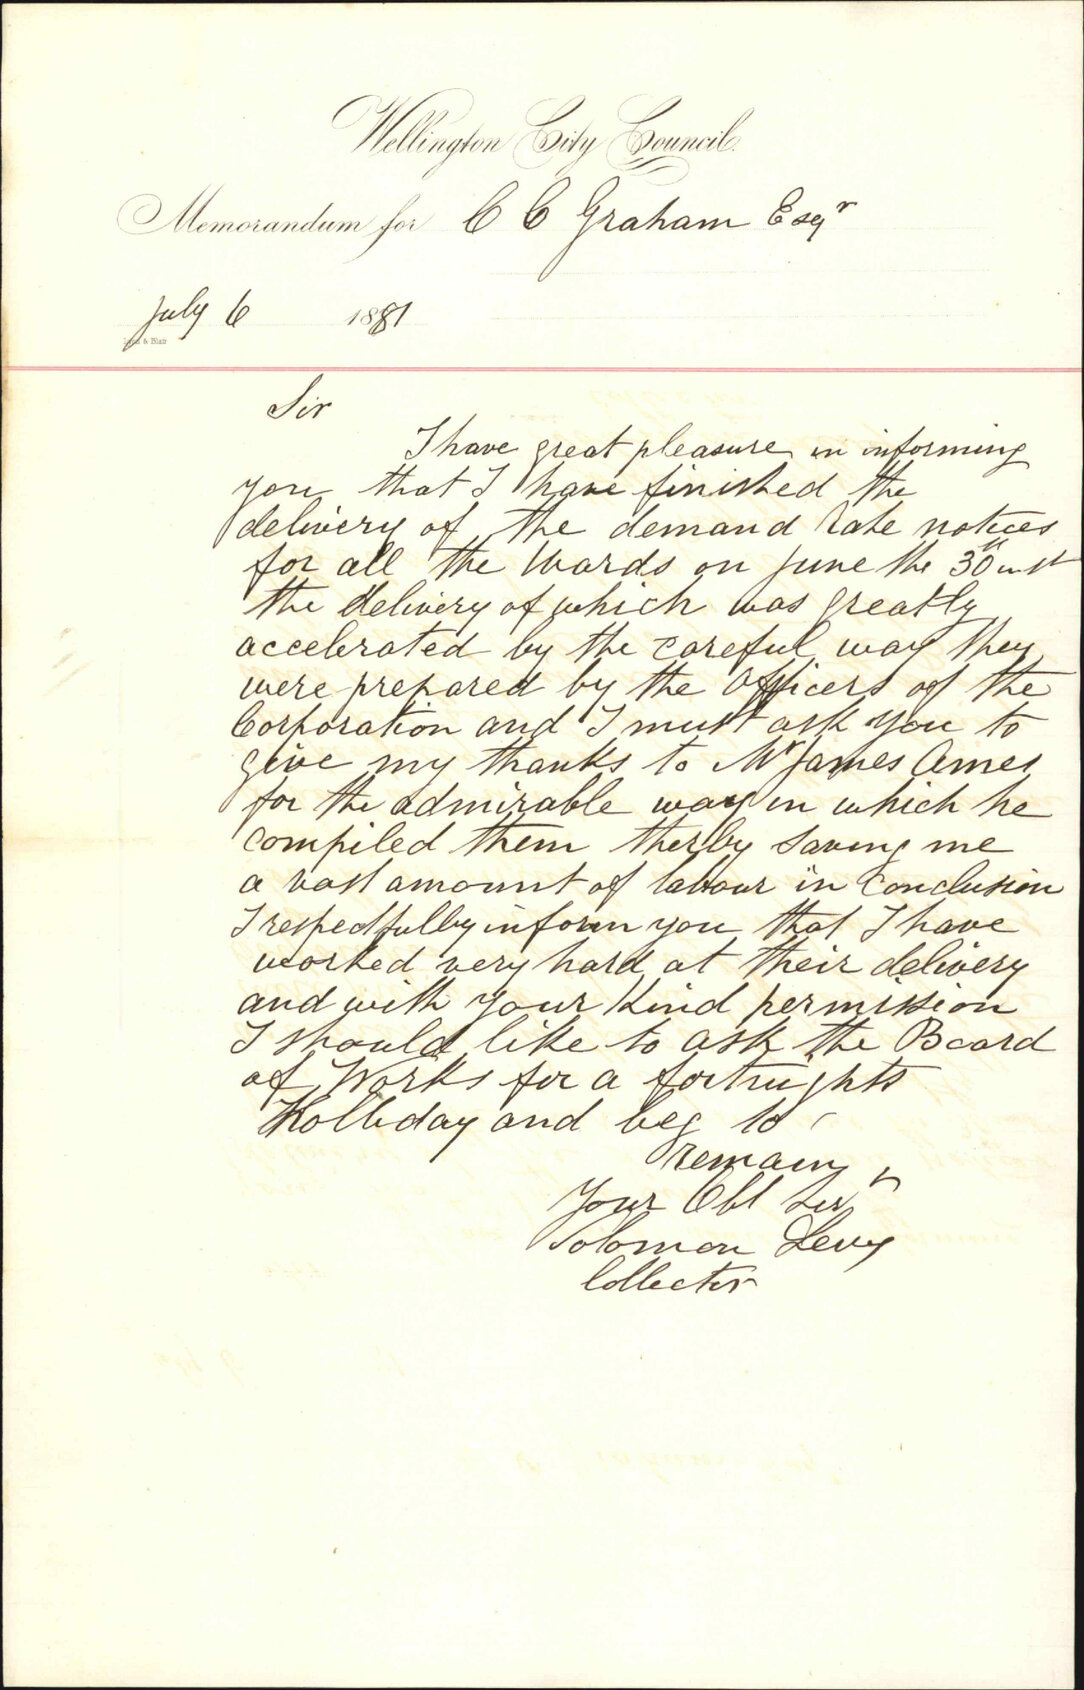 Wellington City Council.
Memorandum for C C Graham Esqr
July 6 1881
& Blair
Sir
I have great pleasure in informing
you that I have finished the
delivery of the demand Rate notices
for all the Wards on June the 30th inst
the delivery of which was greatly
accelerated by the careful way they
were prepared by the Officers of the
Corporation and I must ask you to
give my thanks to Mr James Ames
for the admirable way in which he
compiled them therby saving me
a vast amount of labour in Conclusion
I respectfully inform you that I have
worked very hard at their delivery
and with your Kind permission
I should like to ask the Board
of Works for a fortnights
Holliday and beg to
remain
Your Obt Ser
Solomon Levy
Collector